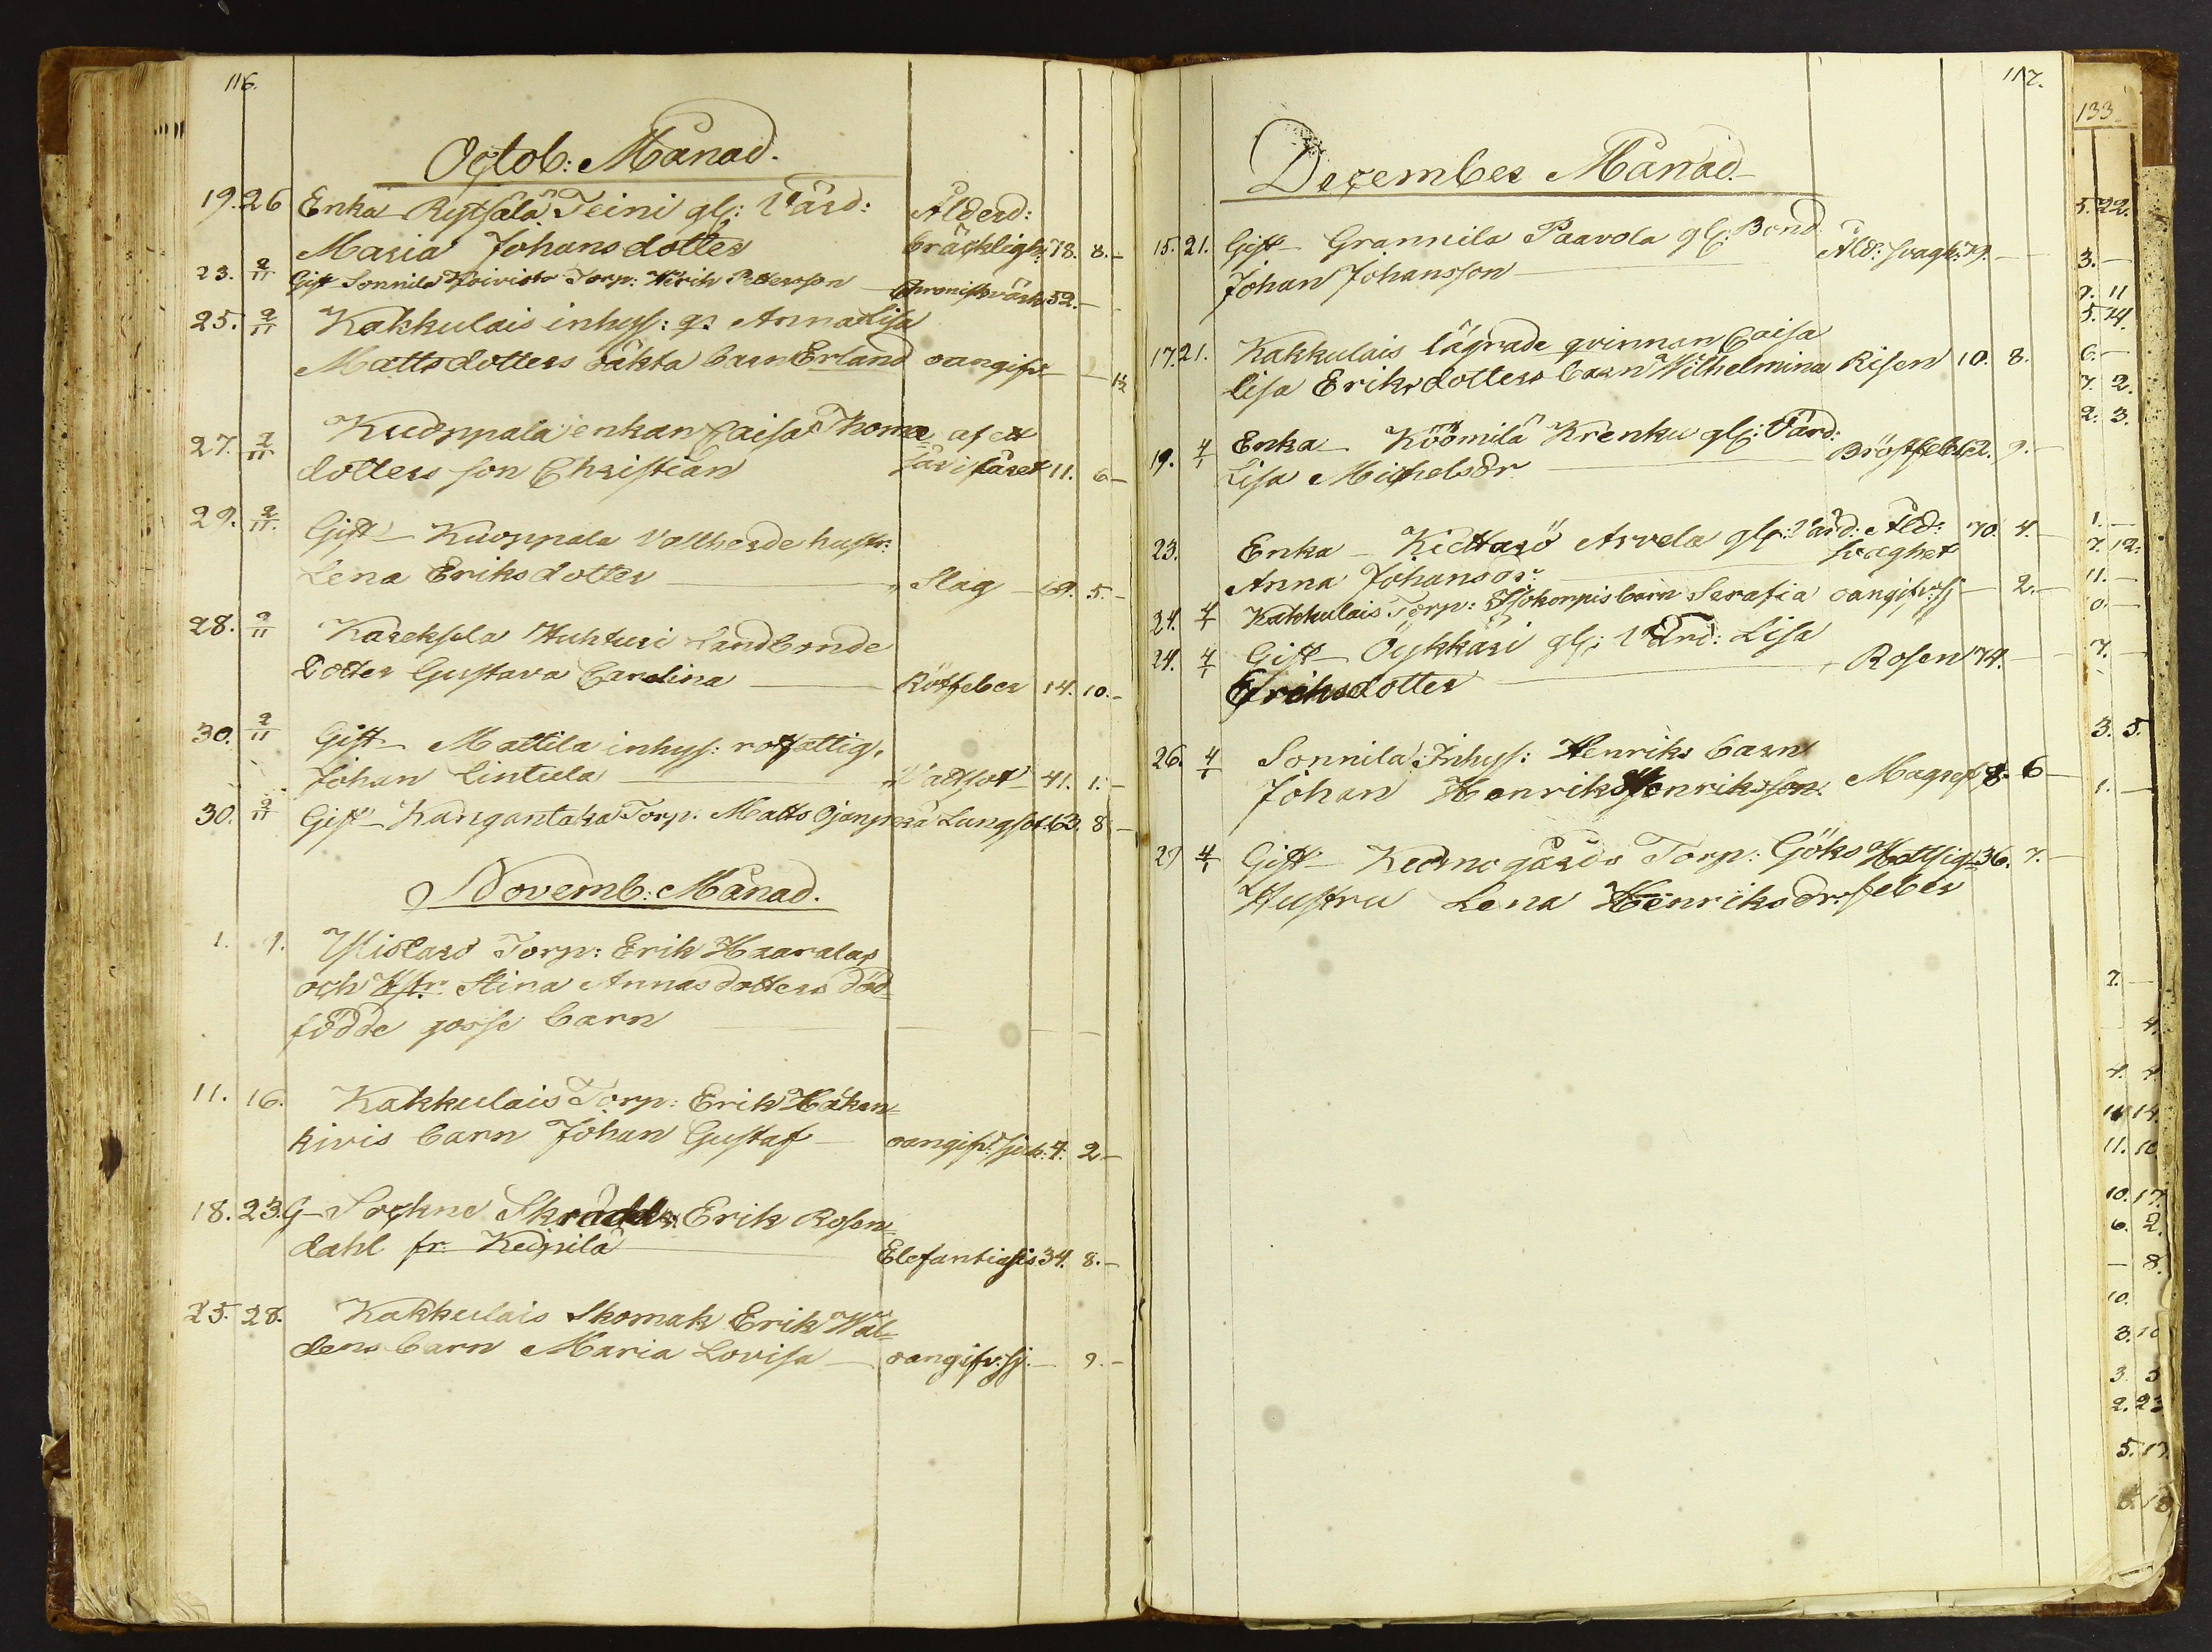 116.
Octob: Månad.
19. 26 Enka Rytsälä Teini gl: Värd: Ålderd:
Maria Johansdotter bräckligh: 78. 8. -
23. 2/11 Gift Sonnila Koivisto Torp: Henrik Pettersson Chronisk värk 52. -
25. 2/11 Kakkulais inhys: qs Anna Lisa
Mattsdotters oäkta barn Erland oangifv: - - 12
27. 2/11 Kuoppala enkan Caisa Thomæ af ett
dotters son Christian sår i låret 11. 6 -
29. 2/11. Gift - Kuoppala Vallherde hustr:
Lena Eriksdotter - Slag - 69. 5. -
28. 2/11 Kareksela Huhturi Landbonde
Dotter Gustava Carolina - Rötfeber 14. 10. -
30. 2/11 Gift - Mattila inhys: rotfattig.
Johan Lintula - Vattsot - 41. 1. -
30. 2/11 Gift - Kangantaka Torp. Matts Ojanperä Lungsot 63. 8 -
Novemb: Månad.
1. 9. Torp: Erik Haaralas
och Hstr Stina Annasdotters död
födde gosse barn - -
11. 16. Kakkulais Torp: Erik Häken=
kivis barn Johan Gustaf - oangifv: sjuk: 4. 2 -
18. 23. G - Sochne Skrädd: Erik Rosen=
dahl fr. Keipilä Elefantiasis 34. 8. -
25. 28. Kakkulais Skomak Erik Wal=
dens barn Maria Lovisa - oangifv: sj: - 9. -
117.
December Månad.
15. 21. Gift - Grannila Paavola gl: Bond
Johan Johansson - Åld: svagh: 79. - -
17. 21. Kakkulais lägrade qvinnan Caisa
Lisa Eriksdotters barn Wilhelmina Risen 10. 8.
19. 4/1 Enka - Köömilä Krenku gl: Värd:
Lisa Michelsdr - Bröstfeb: 62. 9. -
23. Enka - Kiettarö Arvela gl: Värd: Åld: 70. 4. -
Anna Johansdr: svaghet
24. 4/1 Kakkulais Torp: barn Serafia oangifv: sj - 2. -
24. 4/1 Gift - Öykkäri gl: Värd: Lisa
Eriksdotter - Rosen 74. - -
26. 4/1 Sonnila Inhys: Henriks barn
Johan Henrik Henriksson. Magref 8. 6 -
27 4/1 Gift - Keomo gårds Torp: Göks Hettsig 36. 7. -
Hustru Lena Henriksdr: feber
133
5. 22.
3. -
9. 11
5. 14.
6. -
7. 2.
2. 3.
1. -
7. 12.
11. -
0. -
7. -
3. 5.
1. -
7. -
- 4.
4. 4.
11. 14.
11. 10.
10. 17.
6. 2.
- 8.
10.
3. 10
3. 5
2. 23
5. 17.